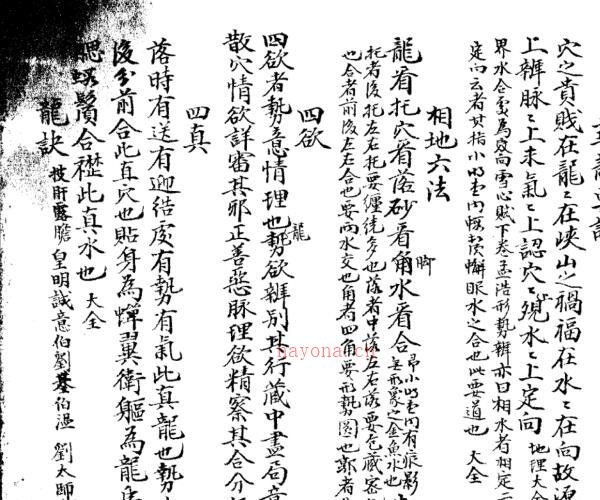 穴之貴賤在龍〻在峽山之禍福在水〻在向故
上辨脉〻上来氣〻上認穴〻覌水〻上定向 地理大
界水合處為窍向雪心賦下卷孟浩形勢辨亦曰相水者相定
定向云者其指小明堂内蝦鬚蠏眼水之合也此要道也 大全
相地六法
龍看托穴看落砂看角水看合
脚
昂小明堂内有痕影
無形象之金魚水也
托者後托左右托要纏繞多也落者中落左右落要在藏
也合者前後左右合也要兩水交也角者四角要形勢圓也
四欲
四欲者勢意情理也勢欲辨别其行藏中盡局
龍
散穴情欲詳審其邪正善惡脉理欲精察其合分
四真
落時有送有迎結處有勢有氣此真龍也
後分前合此真穴也貼身為蟬翼衛軀為龍
鬚合襟此真水也 大全
龍訣 披肝露膽皇明誠意伯劉基伯温 劉太師
nayona.cn